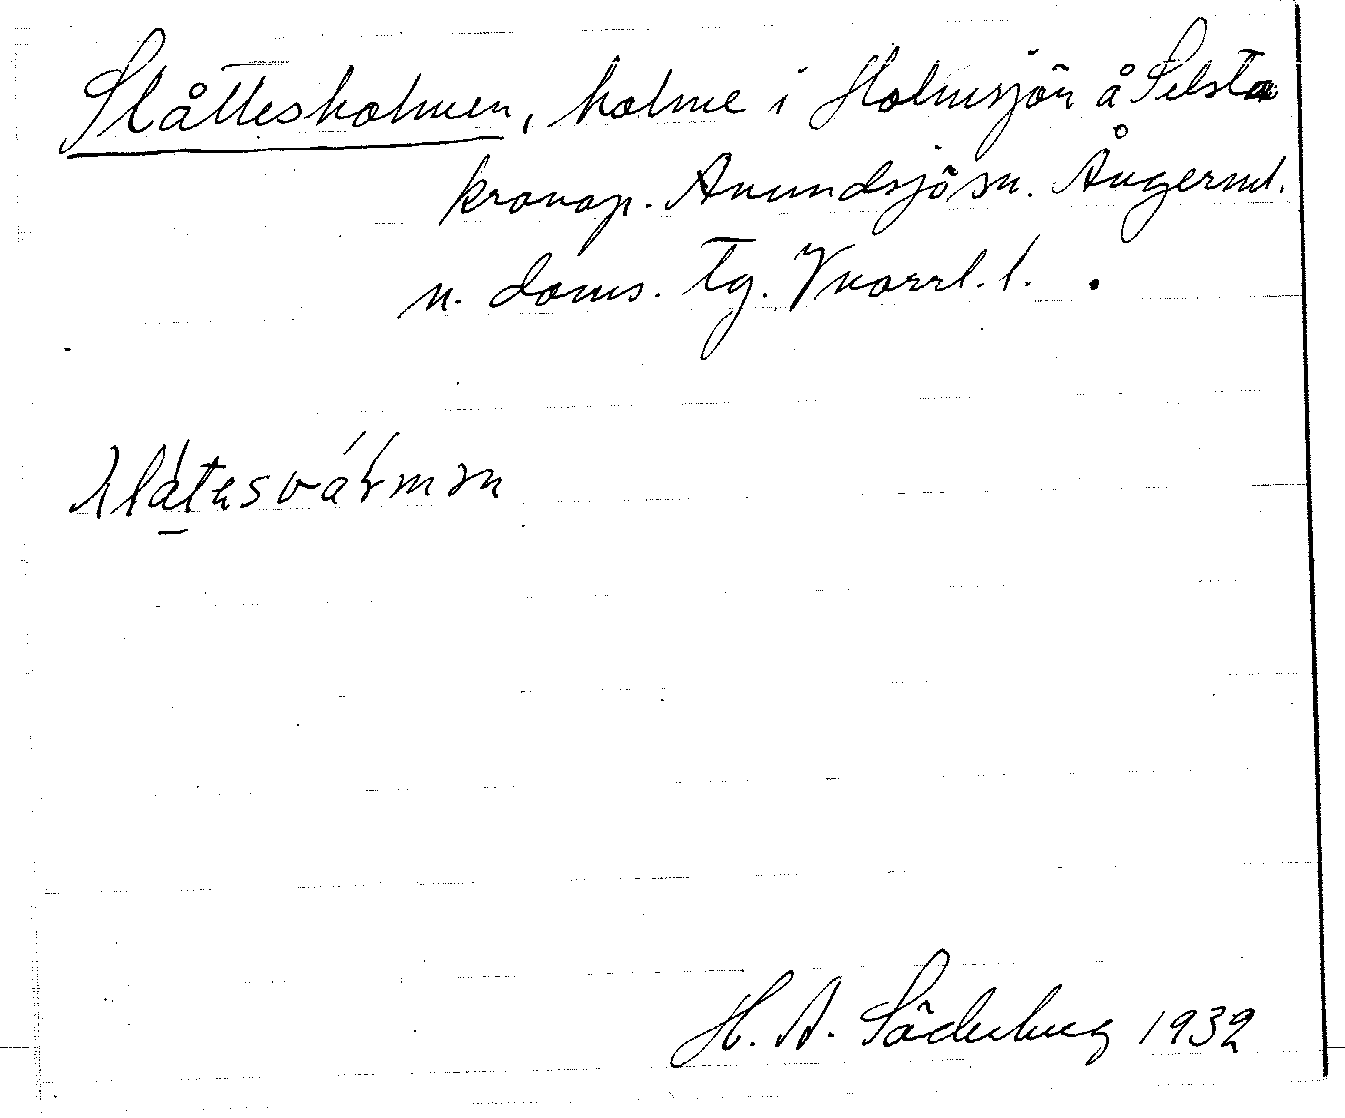 Slåttesholmen, holme i Holmsjön å Selsta
kronop. Anundsjö sn. Ångerml.
n. doms. tg. Vnorrl. l.
H. A. Söderberg 1932